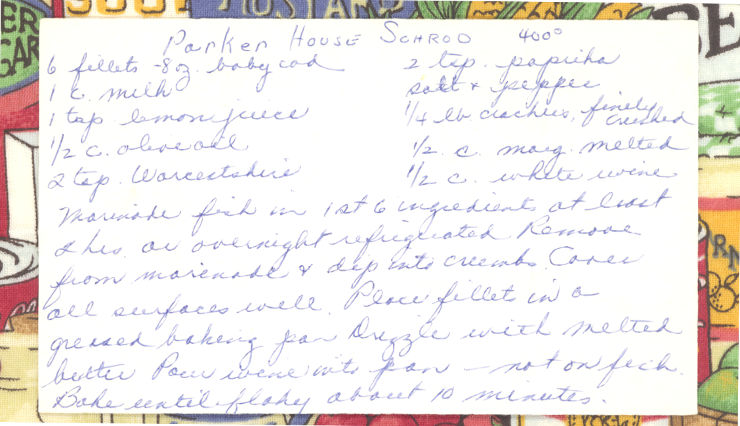 MUSTARD
Parker House Schrod 400°
6 fillets - 8 oz. baby cod
1 c. milk
1 tsp lemon juice
1/2 c. olive oil
2 tsp. Worcestshire
2 tsp. paprika
salt + pepper
1/4 lb crackers, finely crushed
1/2 c. marg. melted
1/2 c. white wine
Marinade fish in 1st 6 ingredients at least
2 hrs. or overnight refrigerated. Remove
from marinade & dip into crumbs. Cover
all surfaces well. Place fillet in a
greased baking pan Drizzle with melted
butter Pour wine into pan - not on fish.
Bake until flaky about 10 minutes.